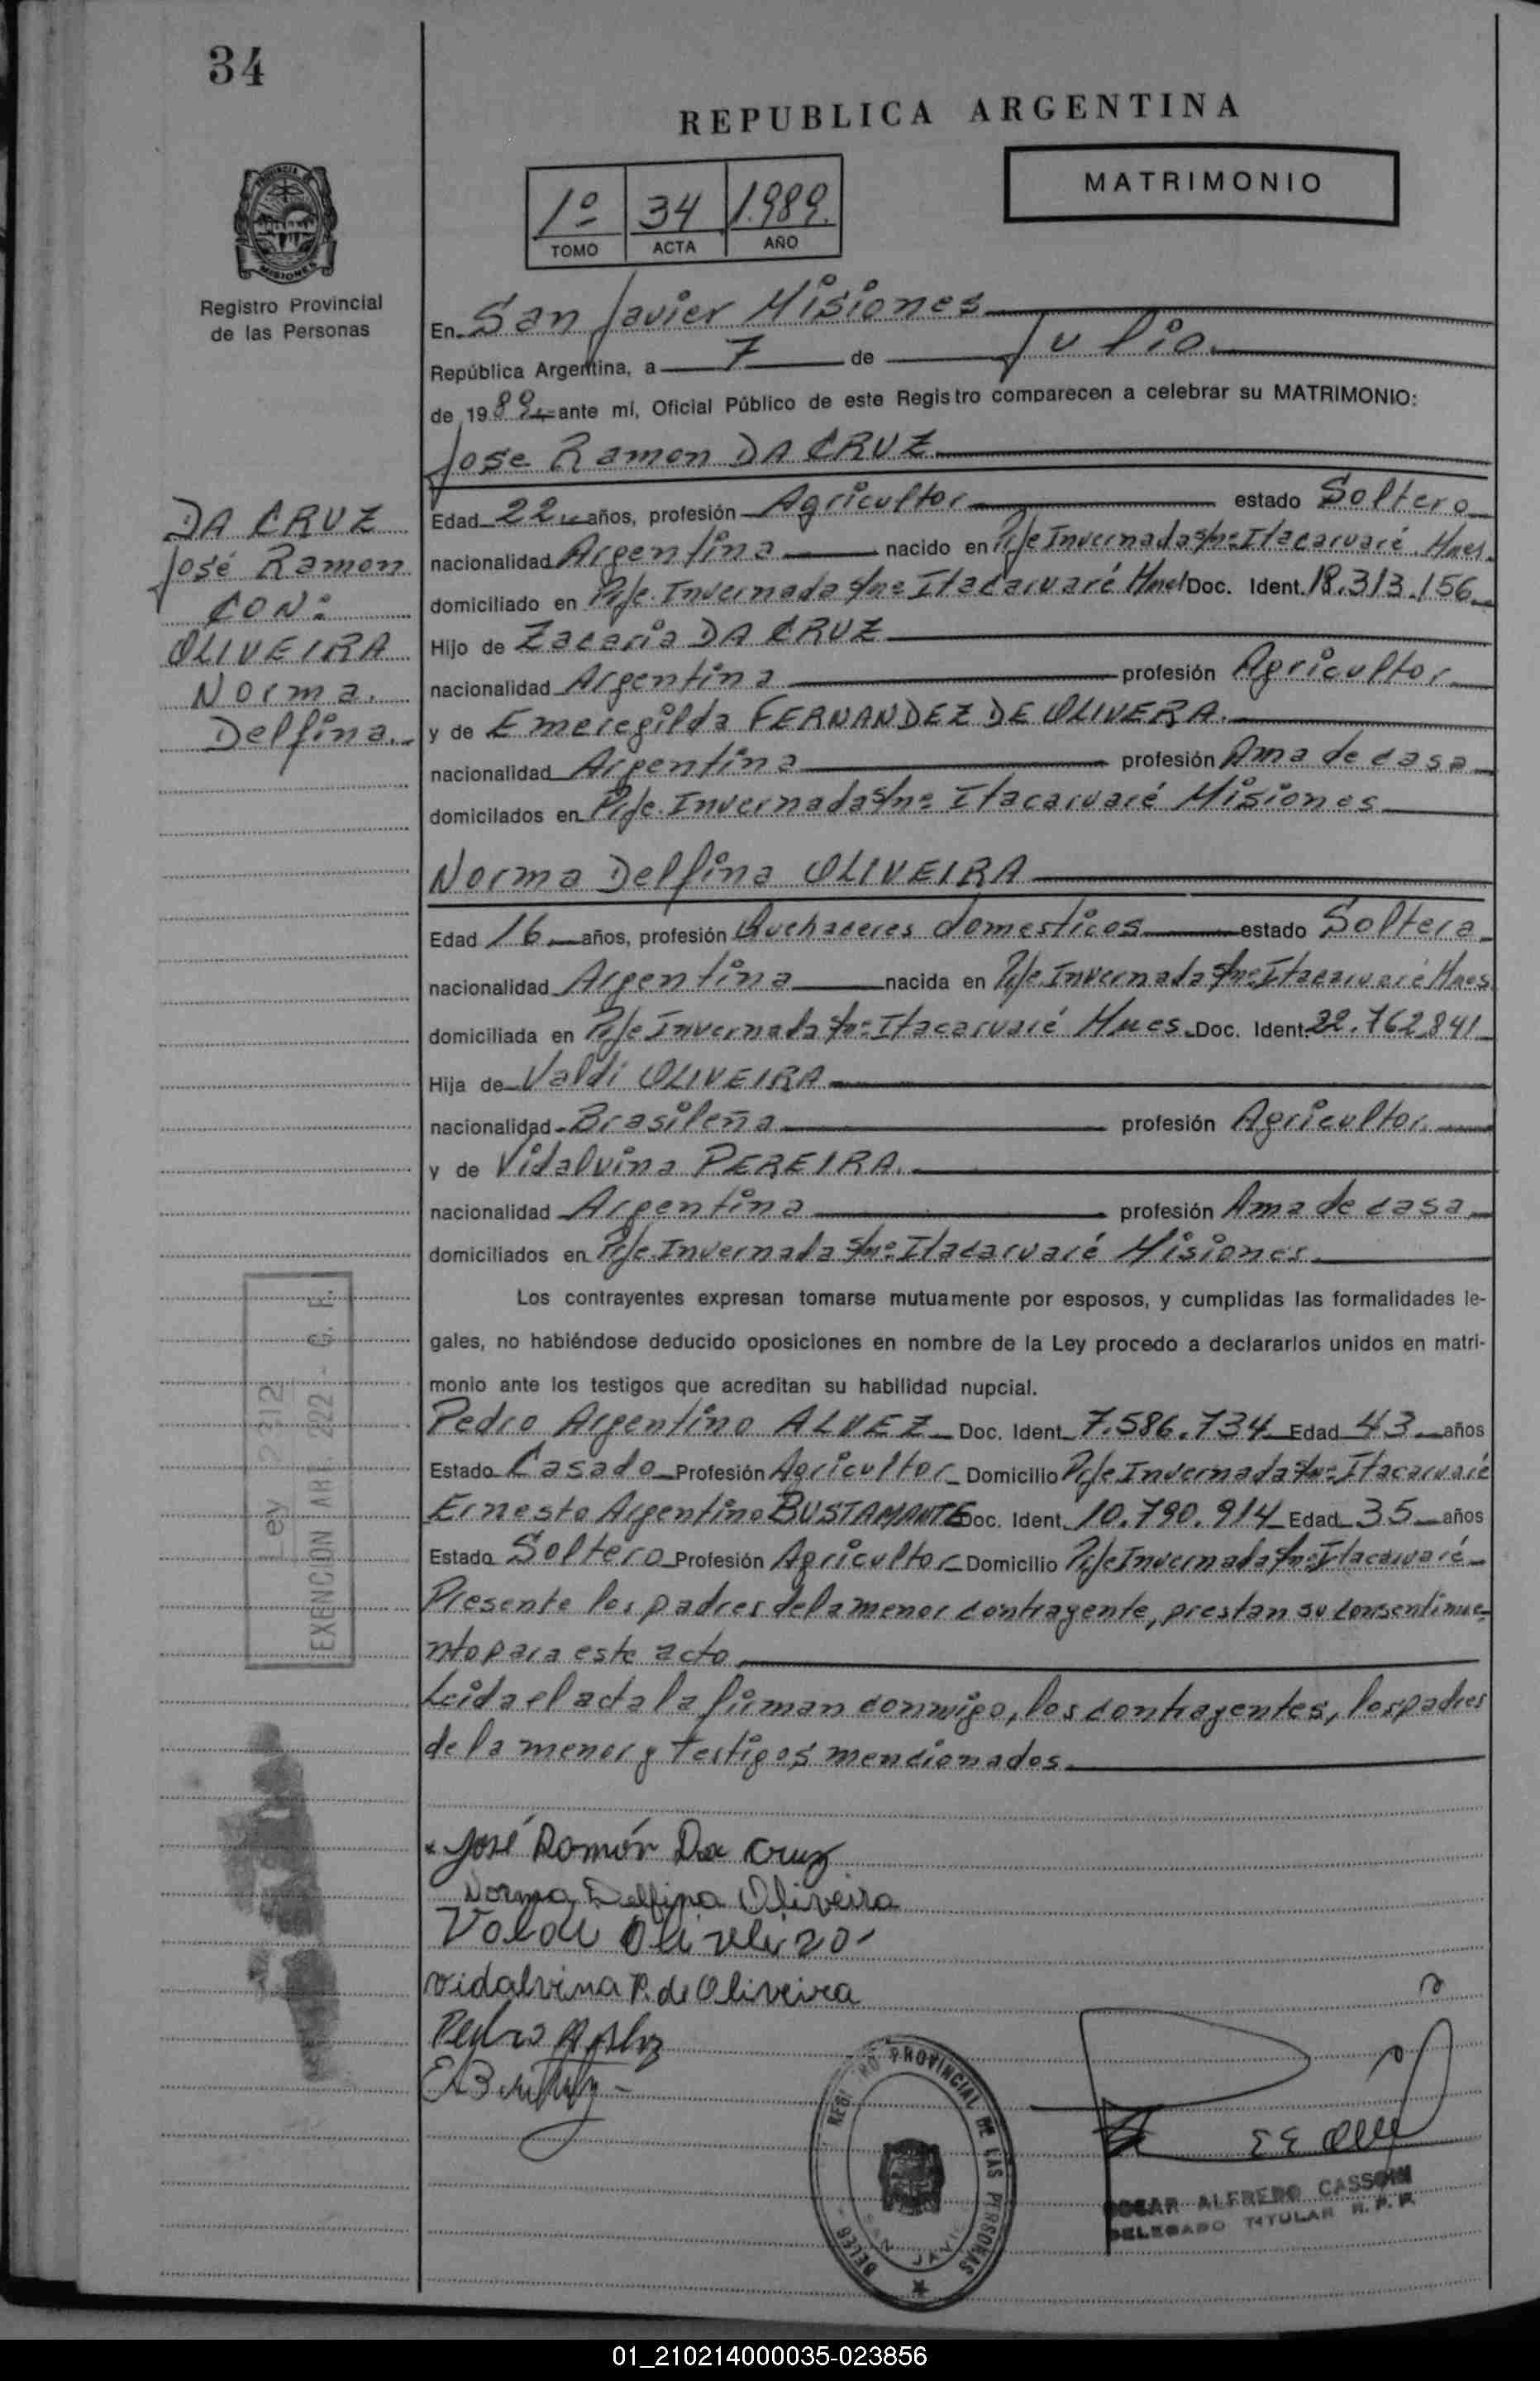 34
REPUBLICA ARGENTINA
MATRIMONIO
1º 34 1.989.
TOMO ACTA AÑO
PROVINCIA DE
MISIONES
Registro Provincial
de las Personas
En San Javier Misiones
República Argentina, a 7 de Julio
de 1989 ante mí, Oficial Público de este Registro comparecen a celebrar su MATRIMONIO:
Jose Ramon DA CRUZ
DA CRUZ
José Ramon
CON:
OLIVEIRA
Norma
Delfina.
Edad 22 años, profesión Agricultor estado Soltero
nacionalidad Argentina nacido en Pje Invernada s/nº Itacaruaré Mnes.
domiciliado en Pje. Invernada s/nº Itacaruaré Mnes Doc. Ident. 18.313.156
Hijo de Zacaria DA CRUZ
nacionalidad Argentina profesión Agricultor
y de Emeregilda FERNANDEZ DE OLIVERA.
nacionalidad Argentina profesión Ama de casa
domicilados en Pje. Invernada s/nº Itacaruaré Misiones
Norma Delfina OLIVEIRA
Edad 16 años, profesión Quehaceres domesticos estado Soltera
nacionalidad Argentina nacida en Pje Invernada s/nº Itacaruaré Mnes
domiciliada en Pje Invernada s/nº Itacaruaré Mnes. Doc. Ident. 22.762.841
Hija de Valdi OLIVEIRA
nacionalidad Brasileña profesión Agricultor.
y de Vidalvina PEREIRA.
nacionalidad Argentina profesión Ama de casa
domiciliados en Pje Invernada s/nº Itacaruaré Misiones
Los contrayentes expresan tomarse mutuamente por esposos, y cumplidas las formalidades le-
gales, no habiéndose deducido oposiciones en nombre de la Ley procedo a declararlos unidos en matri-
monio ante los testigos que acreditan su habilidad nupcial.
Pedro Argentino ALVEZ Doc. Ident. 7.586.734 Edad 43 años
Estado Casado Profesión Agricultor Domicilio Pje Invernada s/nº Itacaruaré
Ernesto Argentino BUSTAMANTE Doc. Ident. 10.790.914 Edad 35 años
Estado Soltero Profesión Agricultor Domicilio Pje Invernada s/nº Itacaruaré
Presente los padres de la menor contrayente, prestan su consentimie-
nto para este acto
Leida el acta la firman conmigo, los contrayentes, los padres
de la menor y testigos mencionados.
Ley 2312
EXENCION ART. 222 - C. F.
José Ramón Da Cruz
Norma Delfina Oliveira
Vidalvina P. de Oliveira
REGISTRO PROVINCIAL DE LAS PERSONAS
DELEG SAN JAVIER
OSCAR ALFREDO CASSONI
DELEGADO TITULAR R. P. P.
01_210214000035-023856